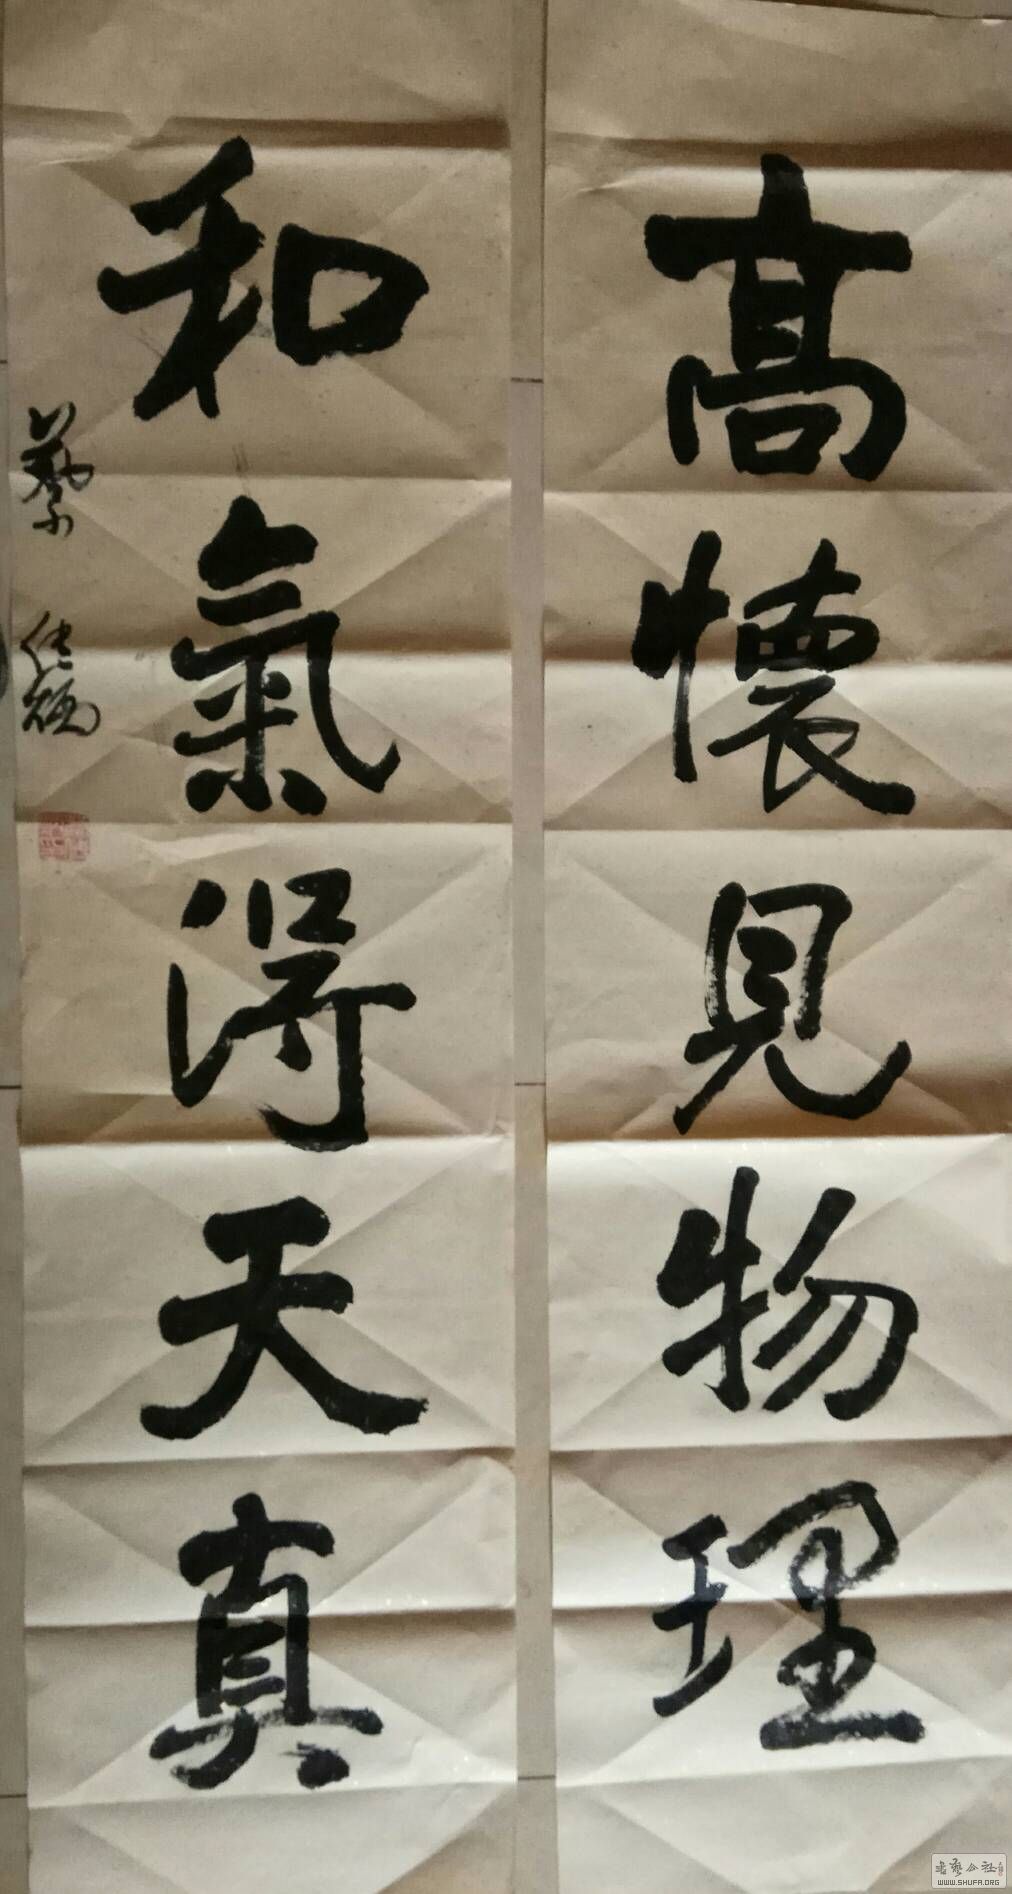 高懷見物理
和氣得天真
WWW.SHUFA.ORG